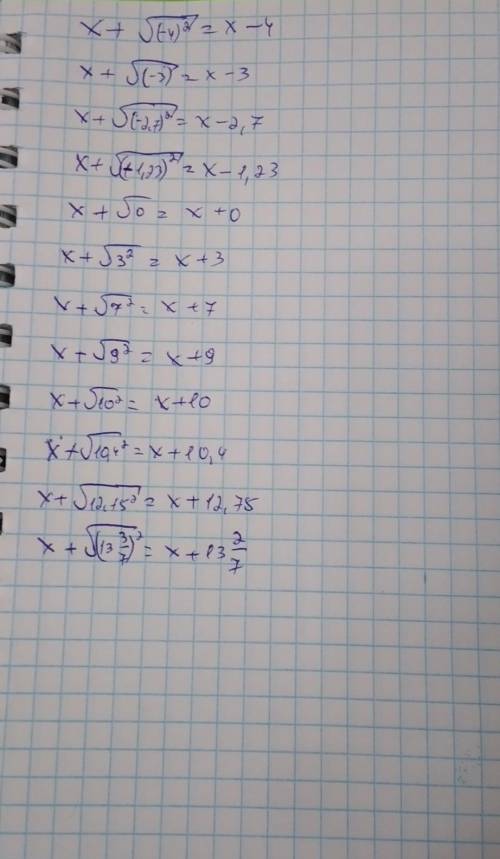 x + √(-4)² = x - 4
x + √(-3)² = x - 3
x + √(-2,7)² = x - 2,7
x + √(-1,23)² = x - 1,23
x + √0 = x + 0
x + √3² = x + 3
x + √7² = x + 7
x + √9² = x + 9
x + √10² = x + 10
x + √10,4² = x + 10,4
x + √12,15² = x + 12,75
x + √(13 3/7)² = x + 13 2/7